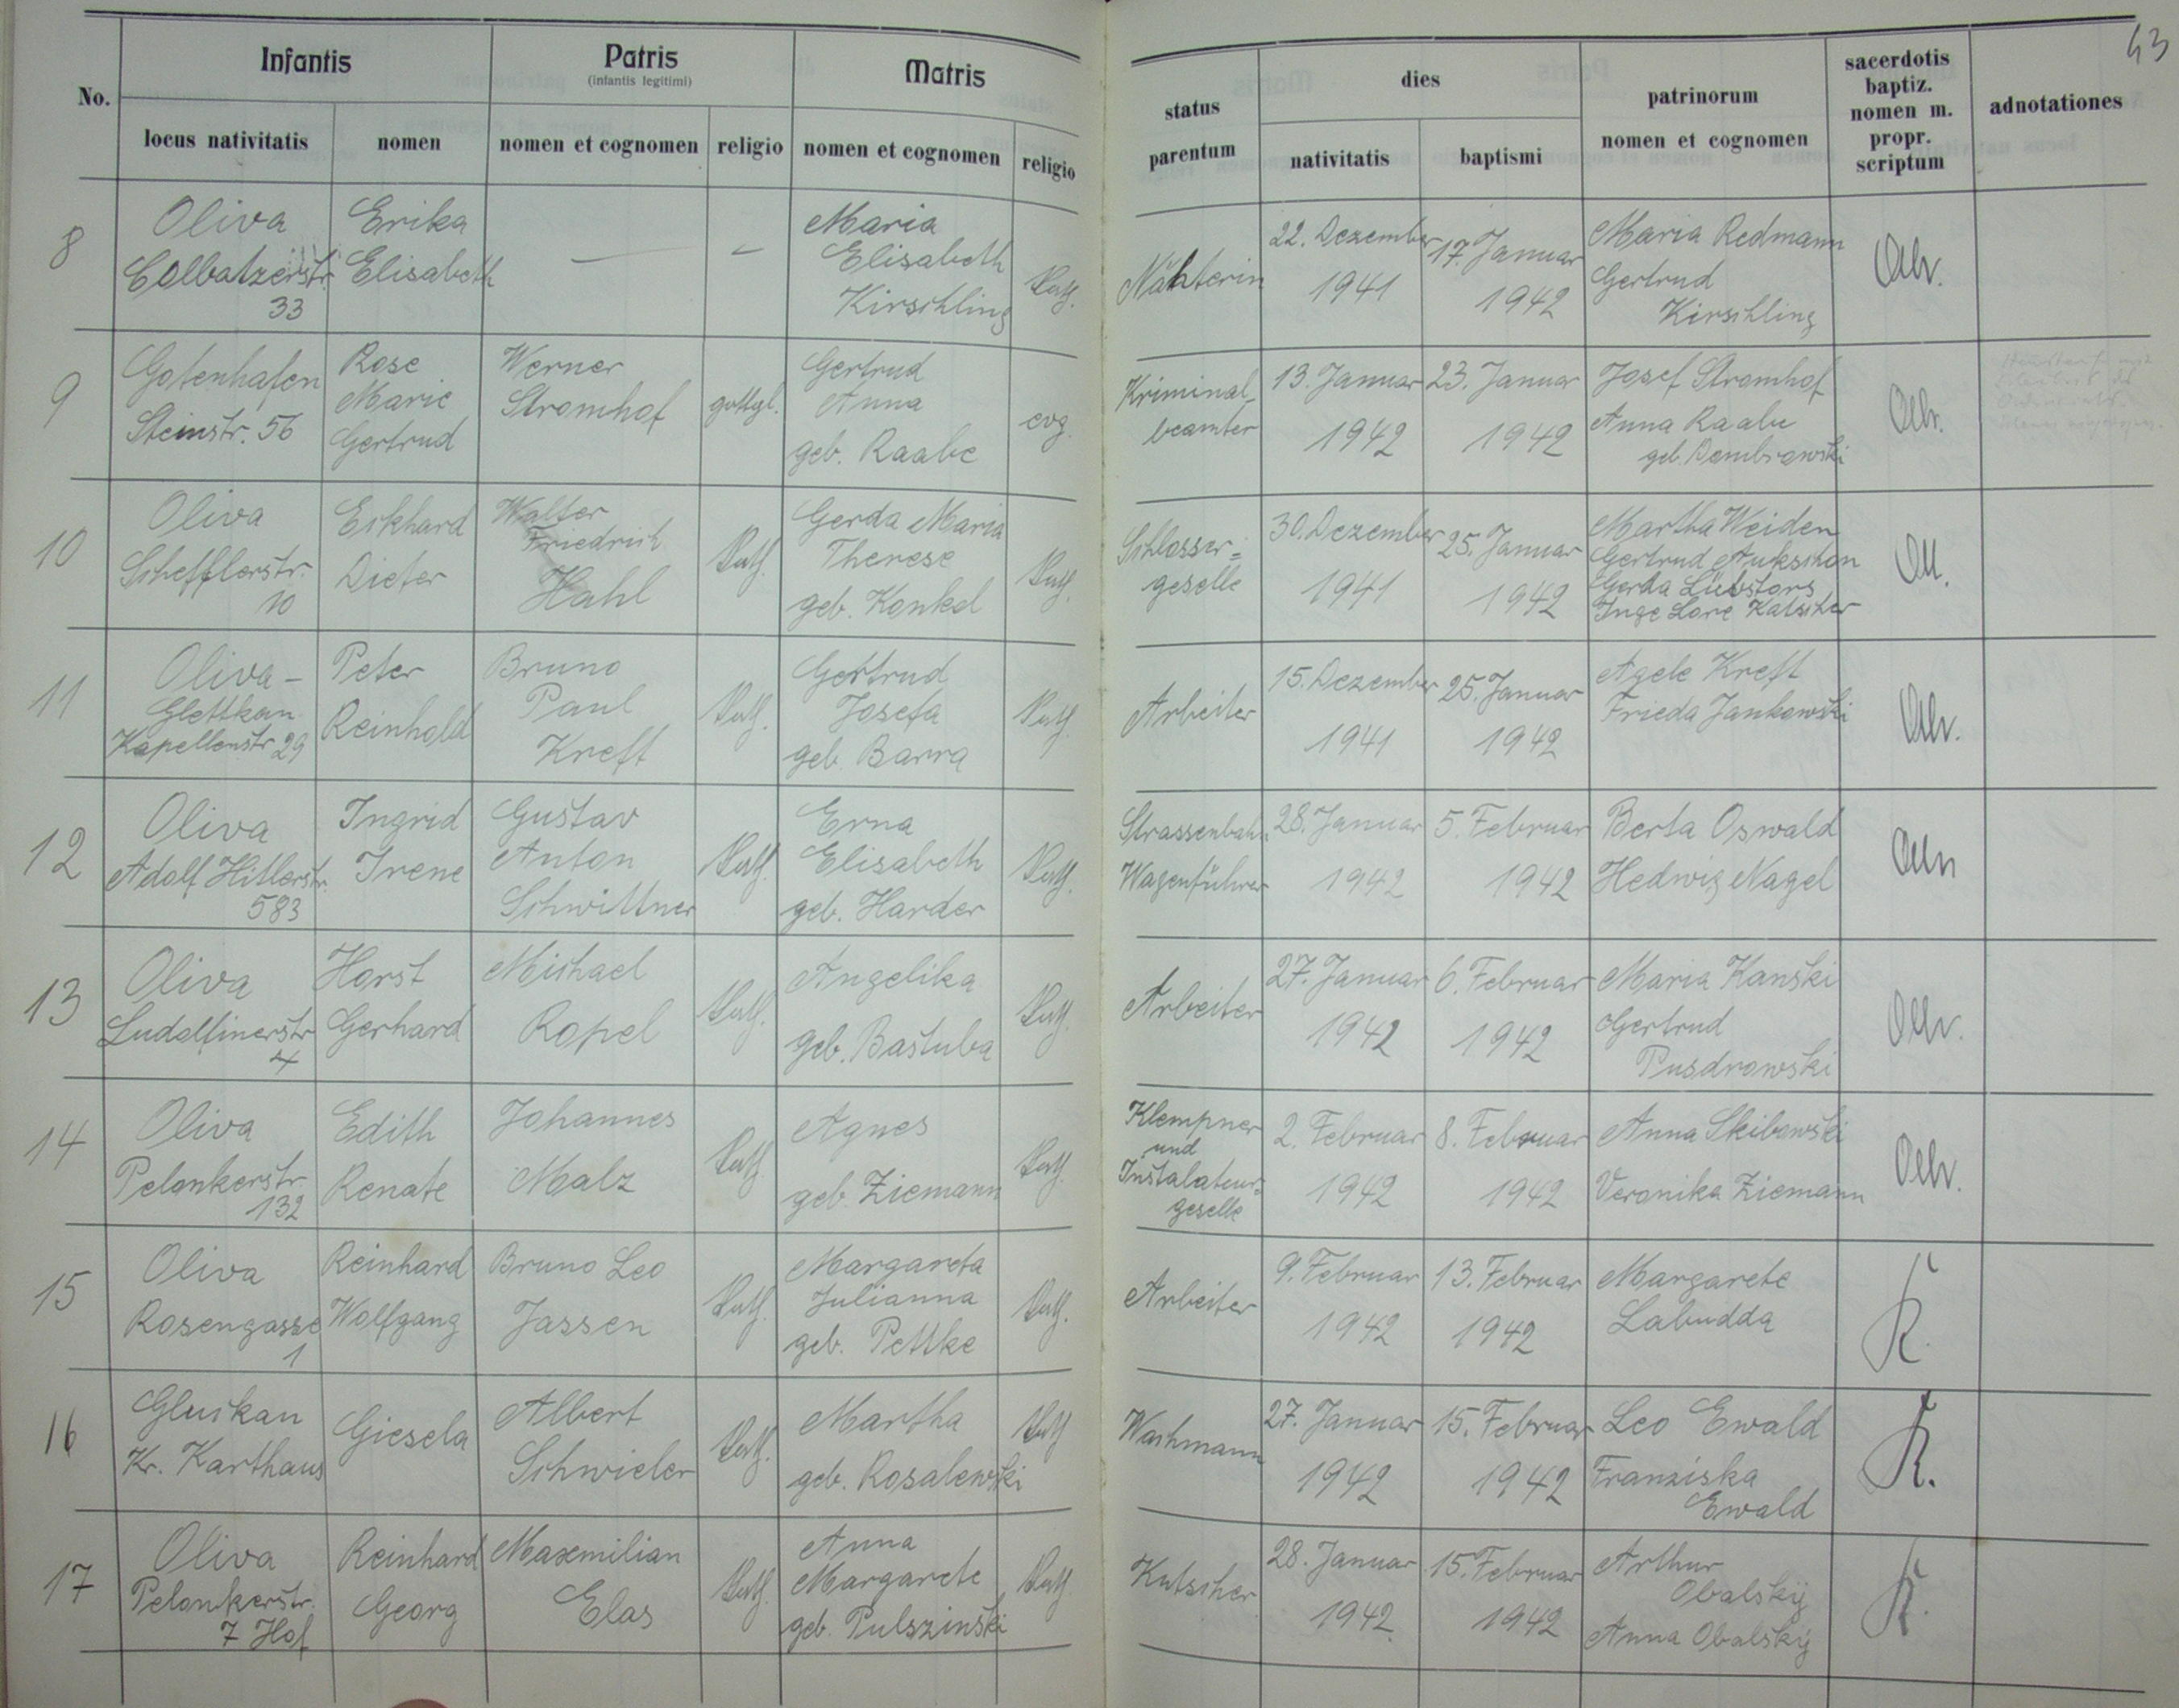 43
No.
Infantis
Patris
(infantis legitimi)
Matris
status
parentum
dies
patrinorum
nomen et cognomen
sacerdotis
baptiz.
nomen m.
propr.
scriptum
adnotationes
locus nativitatis
nomen
nomen et cognomen
religio
nomen et cognomen
religio
nativitatis
baptismi
8
Oliva
Colbatzerstr.
33
Erika
Elisabeth
—
–
Maria
Elisabeth
Kirschling
kath.
Nähterin
22. Dezember
1941
17. Januar
1942
Maria Redmann
Gertrud
Kirschling
9
Gotenhafen
Steinstr. 56
Rose
Marie
Gertrud
Werner
Stromhof
gottgl.
Gertrud
Anna
geb. Raabe
evg.
Kriminal-
beamter
13. Januar
1942
23. Januar
1942
Josef Stromhof
Anna Raabe
geb. Dombrowski
10
Oliva
Schefflerstr.
10
Eckhard
Dieter
Walter
Friedrich
Hahl
kath.
Gerda Maria
Therese
geb. Konkel
kath.
Schlosser-
geselle
30. Dezember
1941
25. Januar
1942
Martha Weiden
Gertrud
Gerda
Inge Lore
11
Oliva-
Glettkau
Kapellenstr 29
Peter
Reinhold
Bruno
Paul
Kreft
kath.
Gertrud
Josefa
geb. Barra
kath.
Arbeiter
15. Dezember
1941
25. Januar
1942
Kreft
Frieda Jankowski
12
Oliva
Adolf Hitlerstr.
583
Ingrid
Irene
Gustav
Anton
Schwittner
kath.
Erna
Elisabeth
geb. Harder
kath.
Strassenbahn
Wagenführer
28. Januar
1942
5. Februar
1942
Berta Oswald
Hedwig Nagel
13
Oliva
Ludolfinerstr
4
Horst
Gerhard
Michael
Ropel
kath.
Angelika
geb. Bastuba
kath
Arbeiter
27. Januar
1942
6. Februar
1942
Maria Kanski
Gertrud
Pusdrowski
14
Oliva
Pelonkerstr
132
Edith
Renate
Johannes
Malz
kath.
Agnes
geb. Ziemann
kath.
Klempner
und
Instalateur-
geselle
2. Februar
1942
8. Februar
1942
Anna Skibowski
Veronika Ziemann
15
Oliva
Rosengasse
1
Reinhard
Wolfgang
Bruno Leo
Jassen
kath.
Margareta
Julianna
geb. Pettke
kath.
Arbeiter
9. Februar
1942
13. Februar
1942
Margarete
Labudda
K.
16
Kr. Karthaus
Giesela
Albert
Schwieler
kath.
Martha
geb. Rosalewski
kath
Wachmann
27. Januar
1942
15. Februar
1942
Leo Ewald
Franziska
Ewald
K.
17
Oliva
Pelonkerstr.
7 Hof
Reinhard
Georg
Maxmilian
Elas
kath.
Anna
Margarete
geb. Pulszinski
kath.
Kutscher
28. Januar
1942
15. Februar
1942
Arthur
Obalsky
Anna Obalsky
K.